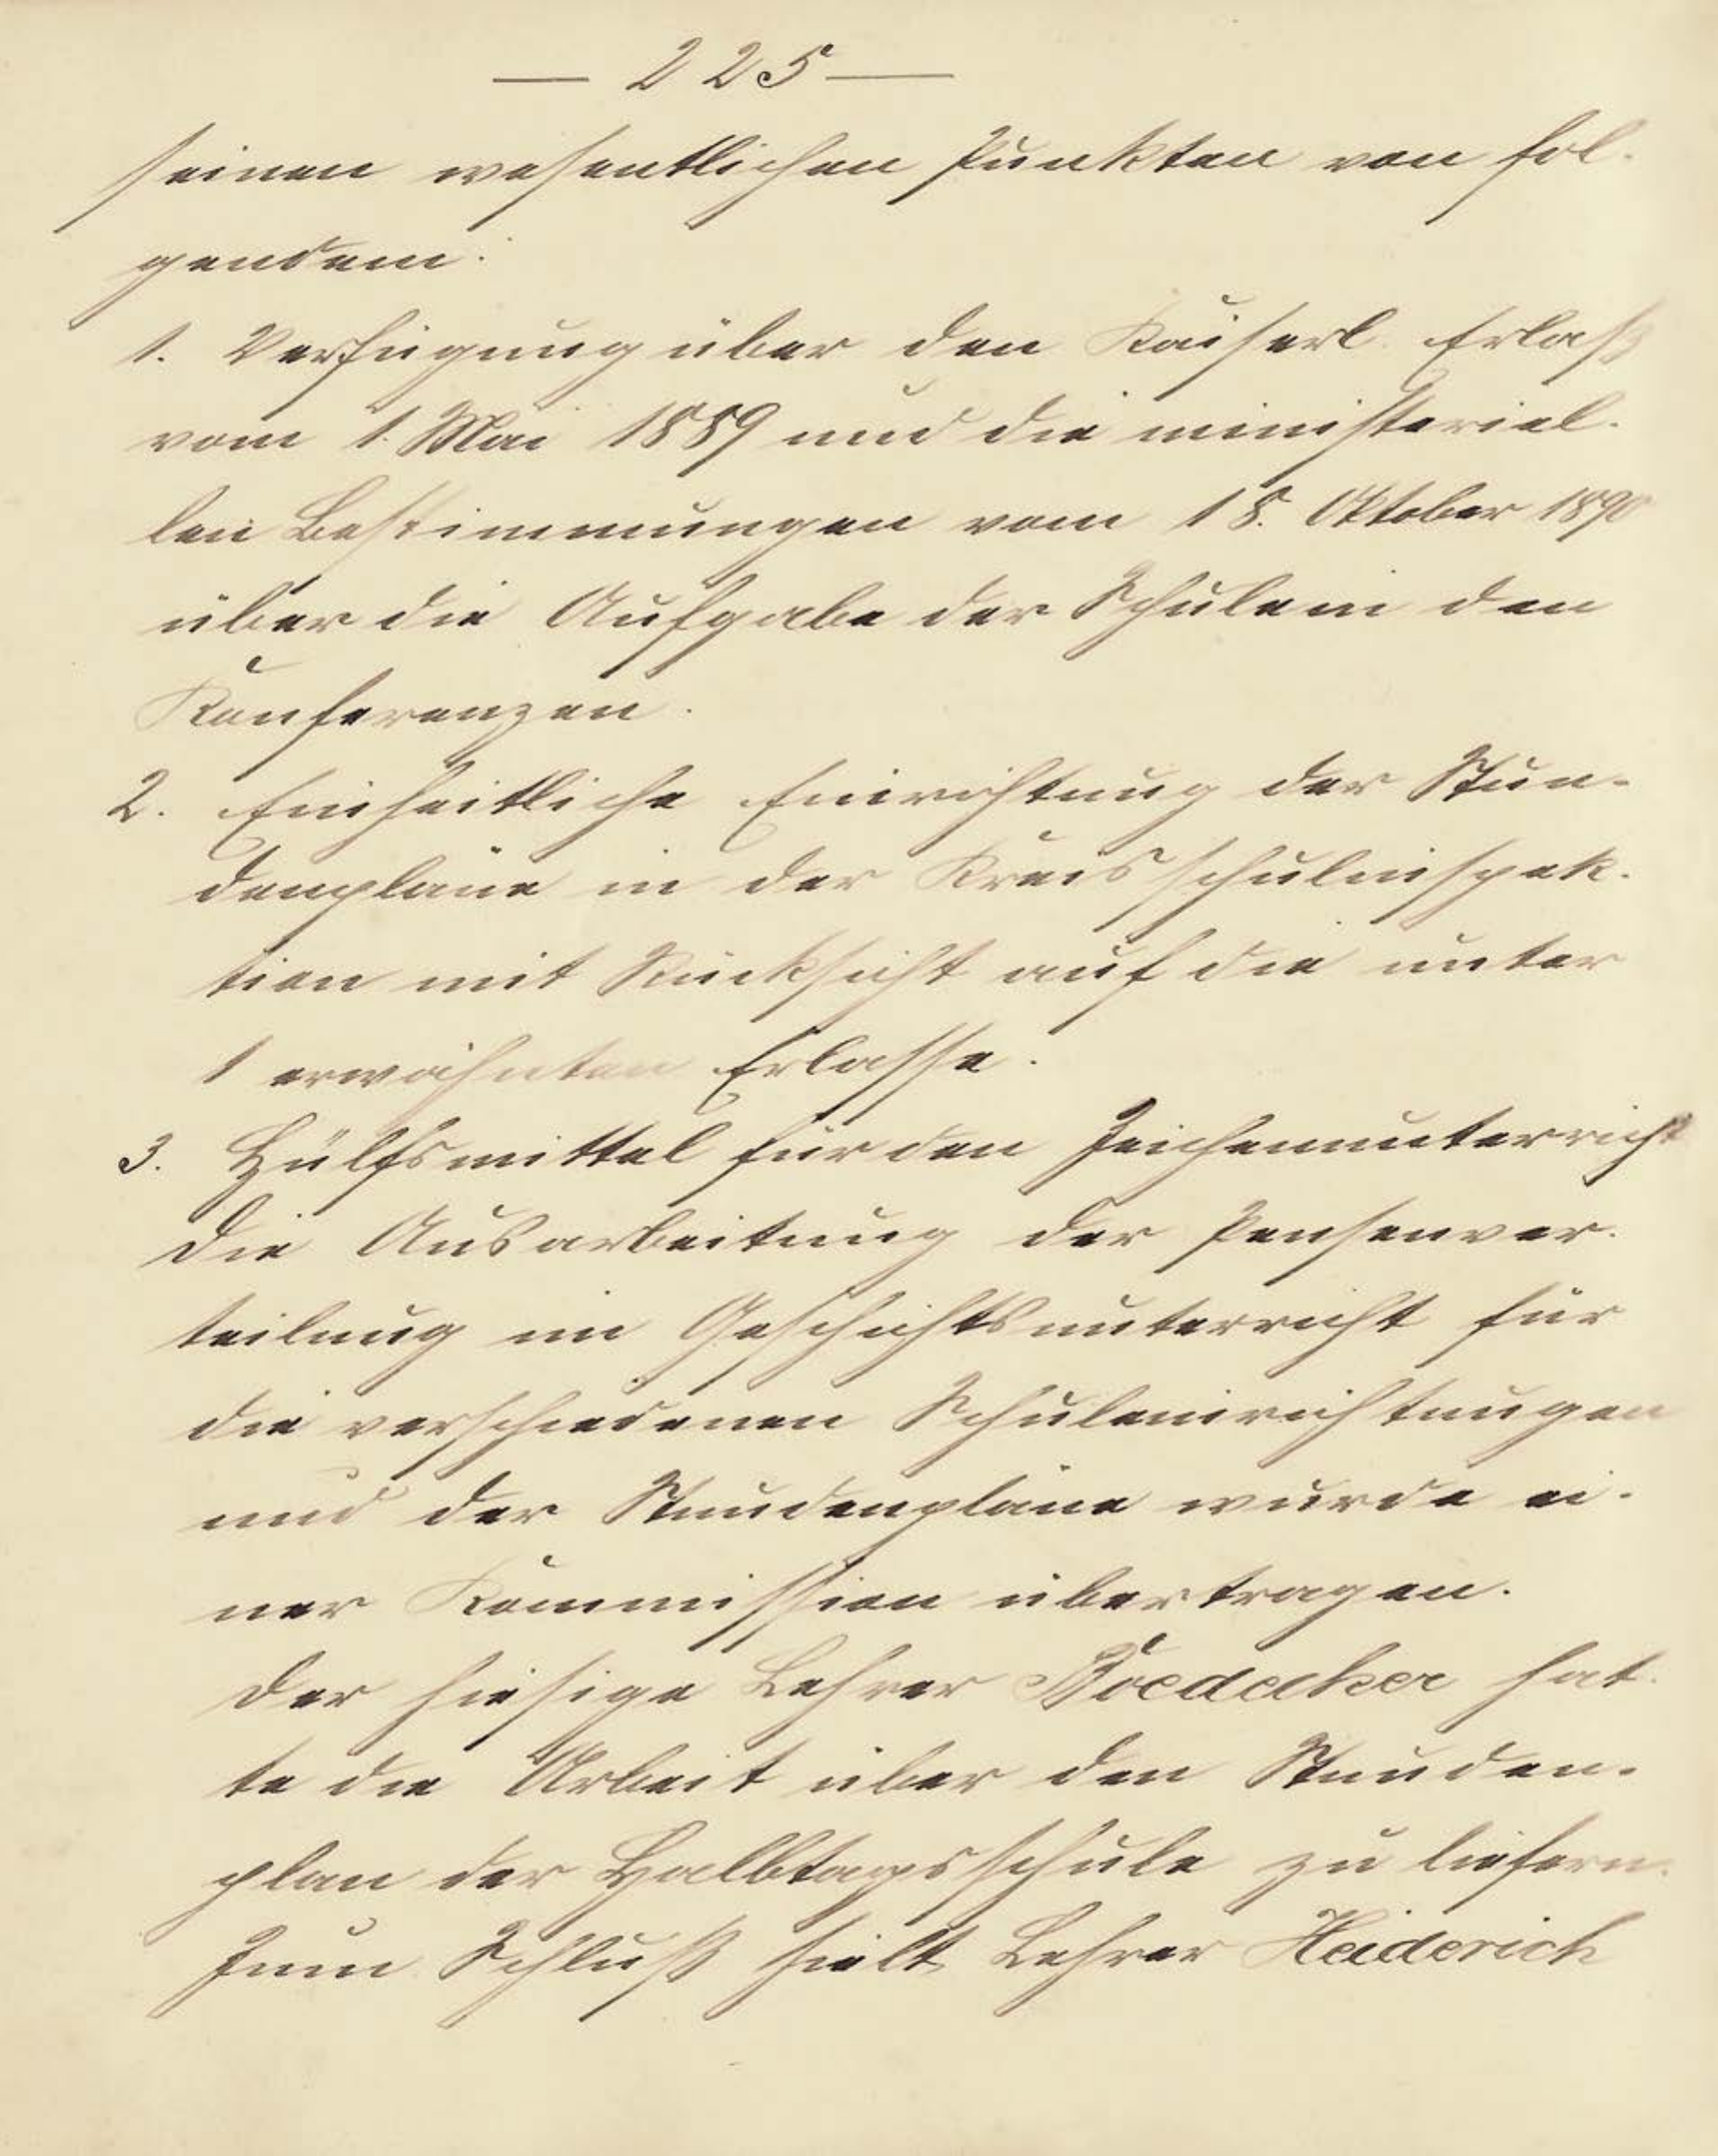 — 225 —
seinen wesentlichen Punkten von fol-
gendem:
1. Verfügung über den Kaiserl. Erlaß
vom 1. Mai 1889 und die ministeriel-
len Bestimmungen vom 18. Oktober 1890
über die Aufgabe der Schule in den
Konferenzen.
2. Einheitliche Einrichtung der Stun-
denpläne in der Kreisschulinspek-
tion mit Rücksicht auf die unter
1 erwähnten Erlasse.
3. Hülfsmittel für den Zeichenunterricht
Die Ausarbeitung der Pensenver-
teilung im Geschichtsunterricht für
die verschiedenen Schuleinrichtungen
und der Stundenpläne wurde ei-
ner Kommission übertragen.
Der hiesige Lehrer Boedecker hat-
te die Arbeit über den Stunden-
plan der Halbtagsschule zu liefern.
Zum Schluß hielt Lehrer Heiderich